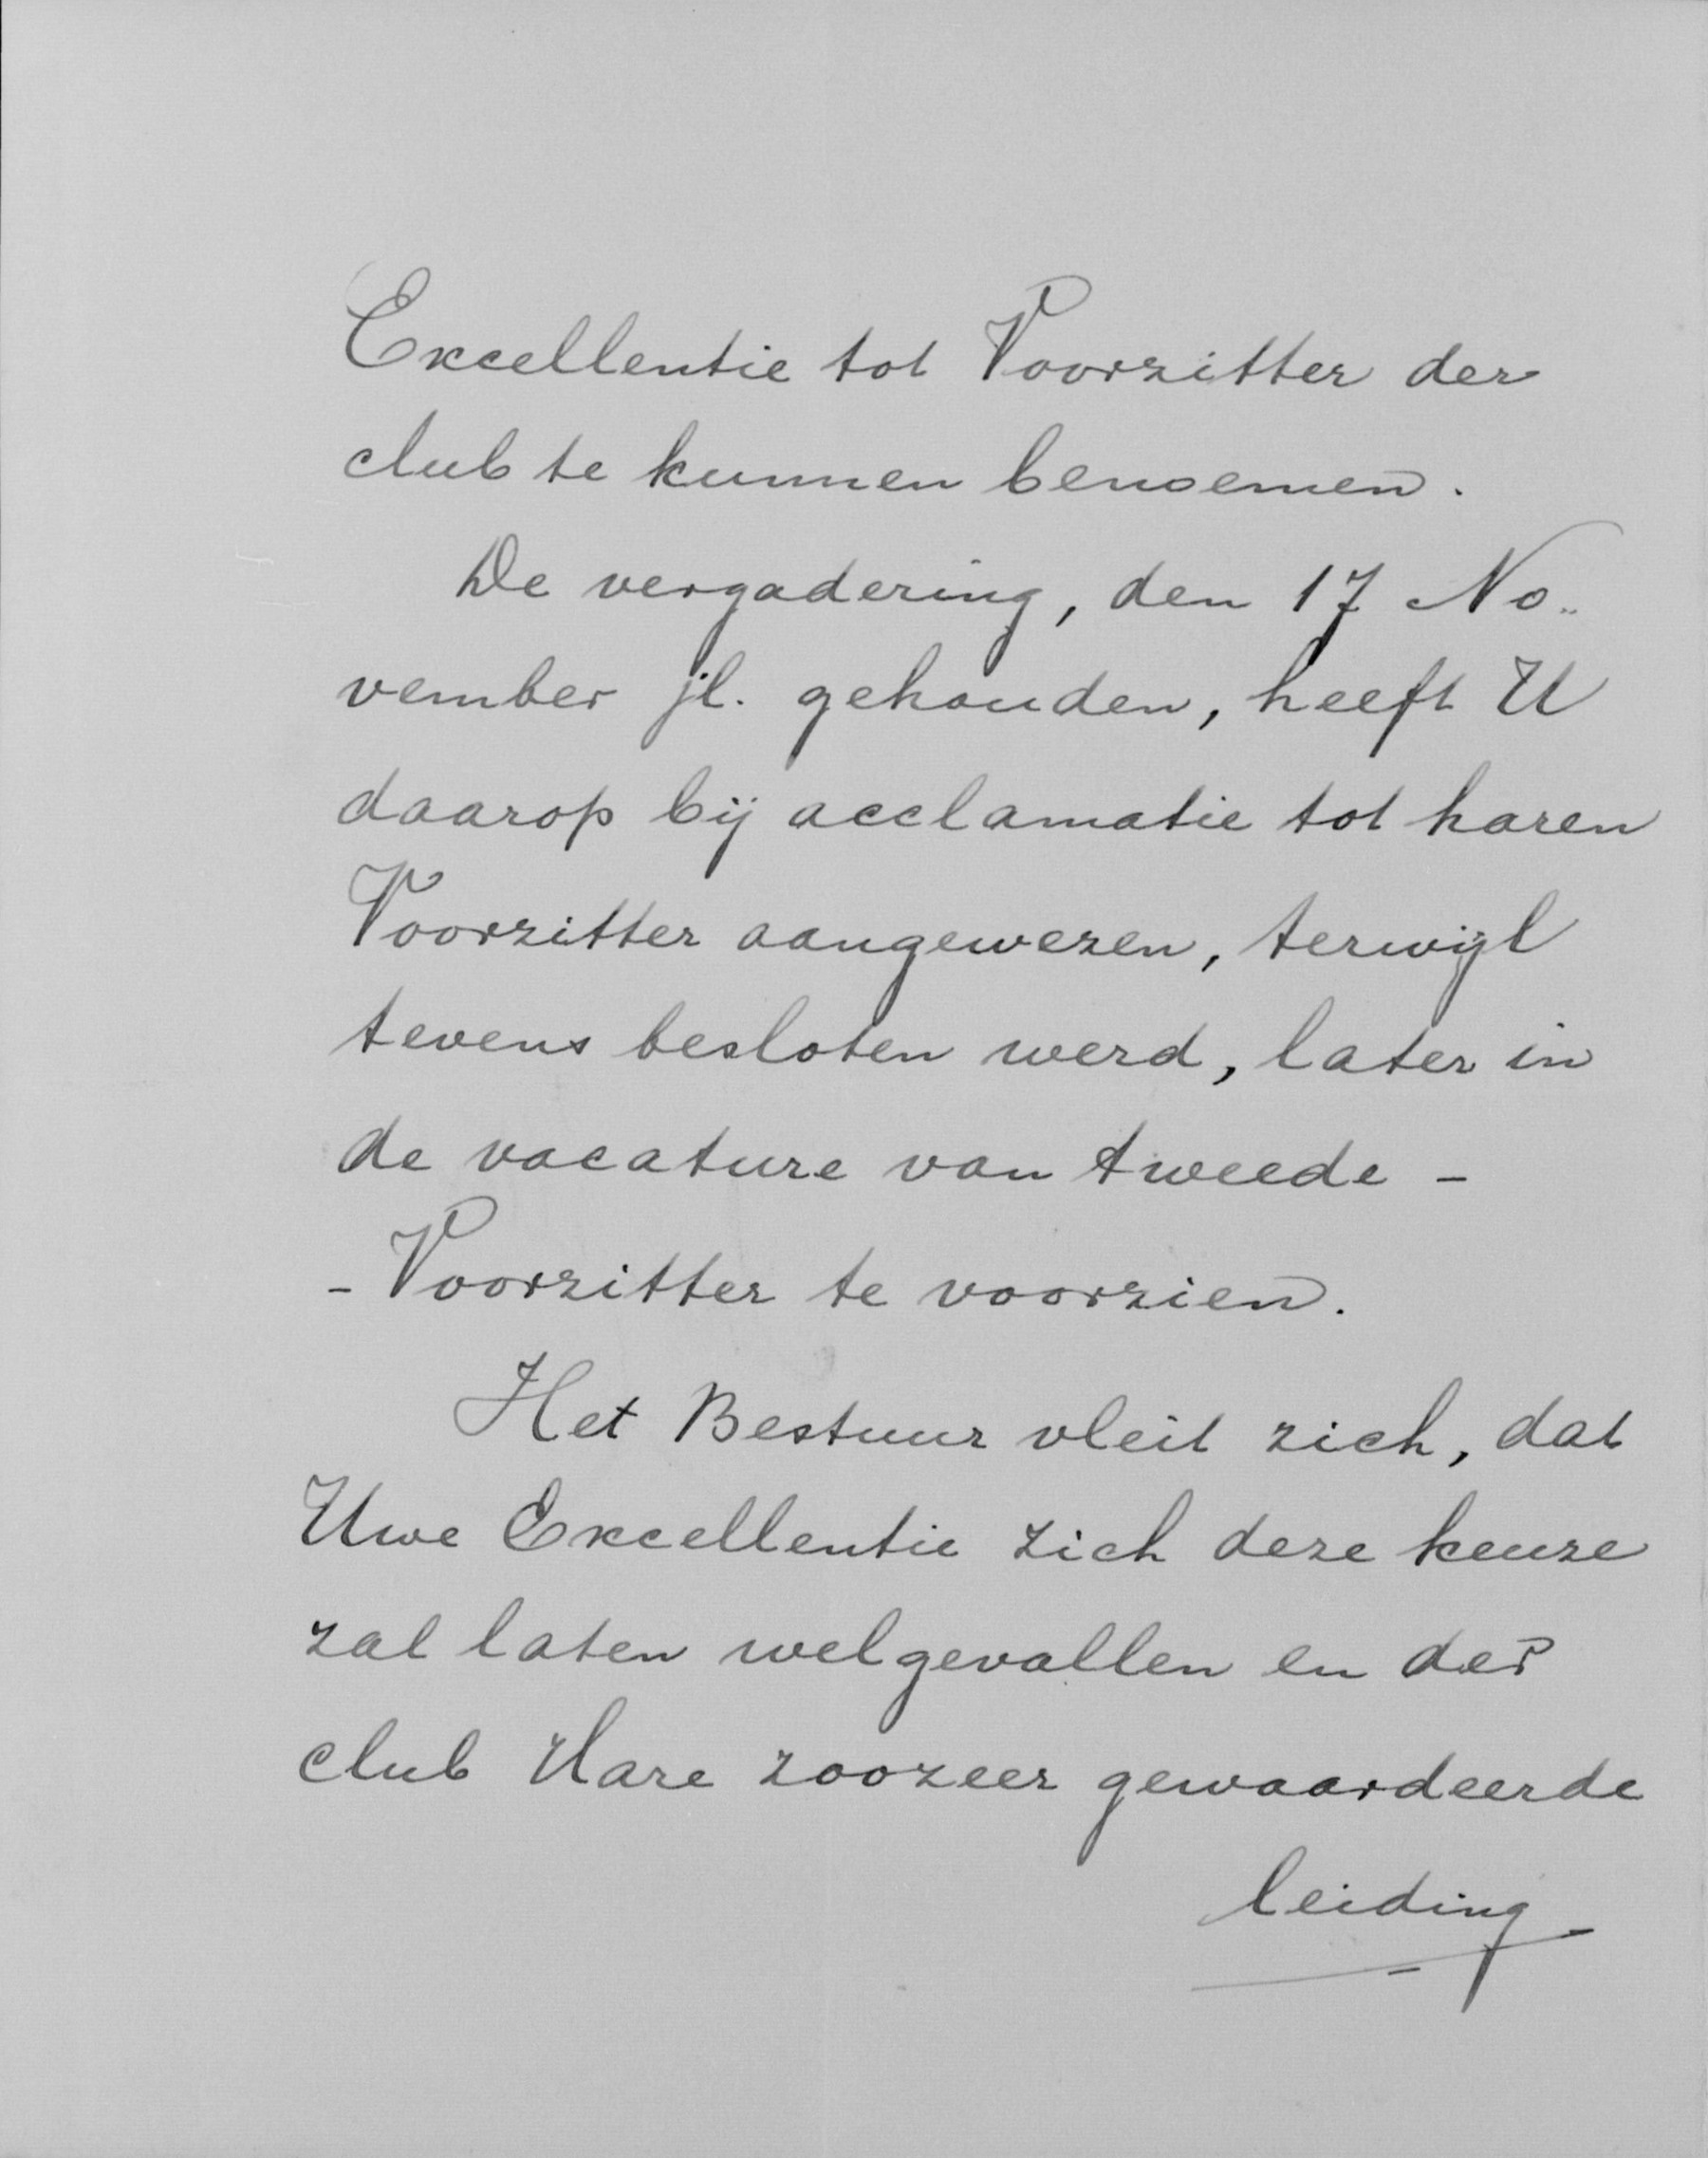 Excellentie tot Voorzitter der
club te kunnen benoemen.
De vergadering, den 17 No-
vember jl. gehouden, heeft U
daarop bij acclamatie tot haren
Voorzitter aangewezen, terwijl
tevens besloten werd, later in
de vacature van tweede -
- Voorzitter te voorzien.
Het Bestuur vleit zich, dat
Uwe Excellentie zich deze keuze
zal laten welgevallen en der
club Hare zoozeer gewaardeerde
leiding